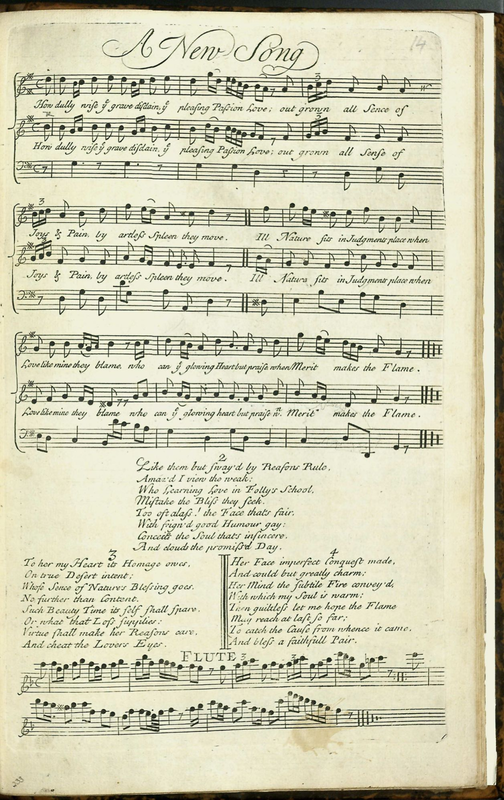 A New Song
14
How dully wise yͤ grave disdain, yͤ pleasing Passion Love; out grown all Sence of
How dully wise yͤ grave disdain, yͤ pleasing Passion Love; out grown all Sense of
Joys & Pain, by artless Spleen they move. Ill Nature sits in Judgments place when
Joys & Pain, by artless Spleen they move. Ill Nature sits in Judgments place when
Love like mine they blame, who can yͤ glowing Heart but praise when Merit makes the Flame.
Love like mine they blame who can yͤ glowing heart but praise wⁿ. Merit makes the Flame.
2
Like them but sway'd by Reasons Rule,
Amaz'd I view the weak;
Who Learning Love in Folly's School,
Mistake the Bliss they seek.
Too oft alass! the Face thats fair,
With feign'd good Humour gay;
Conceals the Soul thats insincere,
And cloud the promis'd Day.
3
To her my Heart its Homage owes,
On true Desert intent;
Whose Sence of Nature's Blessing goes,
No further than Content.
Such Beauty Time its self shall spare,
Or what that Loss supplies;
Virtue shall make her Reasons care,
And cheat the Lovers Eyes.
4
Her Face imperfect Conquest made,
And could but greatly charm;
Her Mind the subtile Fire convey'd,
With which my Soul is warm;
Then guiltless let me hope the Flame
May reach at last so far;
To catch the Cause from whence it came,
And bless a faithfull Pair.
FLUTE